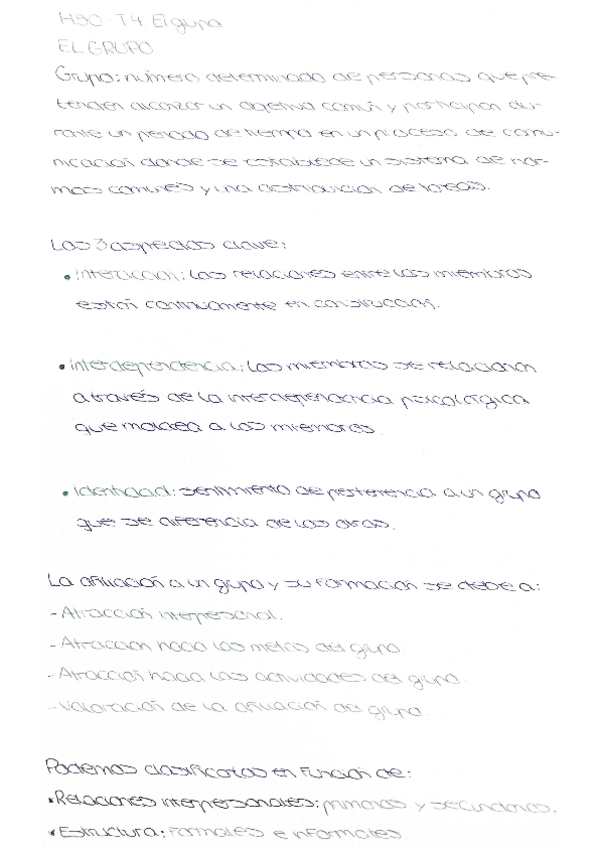 HSO-T4 El grupo
EL GRUPO
Grupo: número determinado de personas que pre-
tenden alcanzar un objetivo común y participan du-
rante un periodo de tiempo en un proceso de comu-
nicación donde se establece un sistema de nor-
mas comunes y una distribución de roles.
Los 3 aspectos clave:
• Interacción: Las relaciones entre los miembros
están continuamente en construcción.
• Interdependencia: Los miembros se relacionan
a través de la interdependencia psicológica
que moldea a los miembros.
• Identidad: sentimiento de pertenencia a un grupo
que se diferencia de los otros.
La afiliación a un grupo y su formación se debe a:
- Atracción interpersonal.
- Atracción hacia las metas del grupo
- Atracción hacia las actividades del grupo.
- Valoración de la afiliación del grupo.
Podemos clasificarlos en función de:
• Relaciones interpersonales: primarios y secundarios.
• Estructura: Formales e informales.